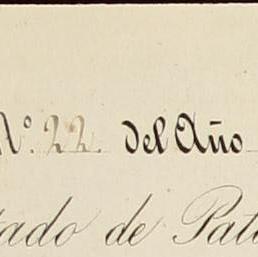 Nº. 22. del Año
tado de Pat